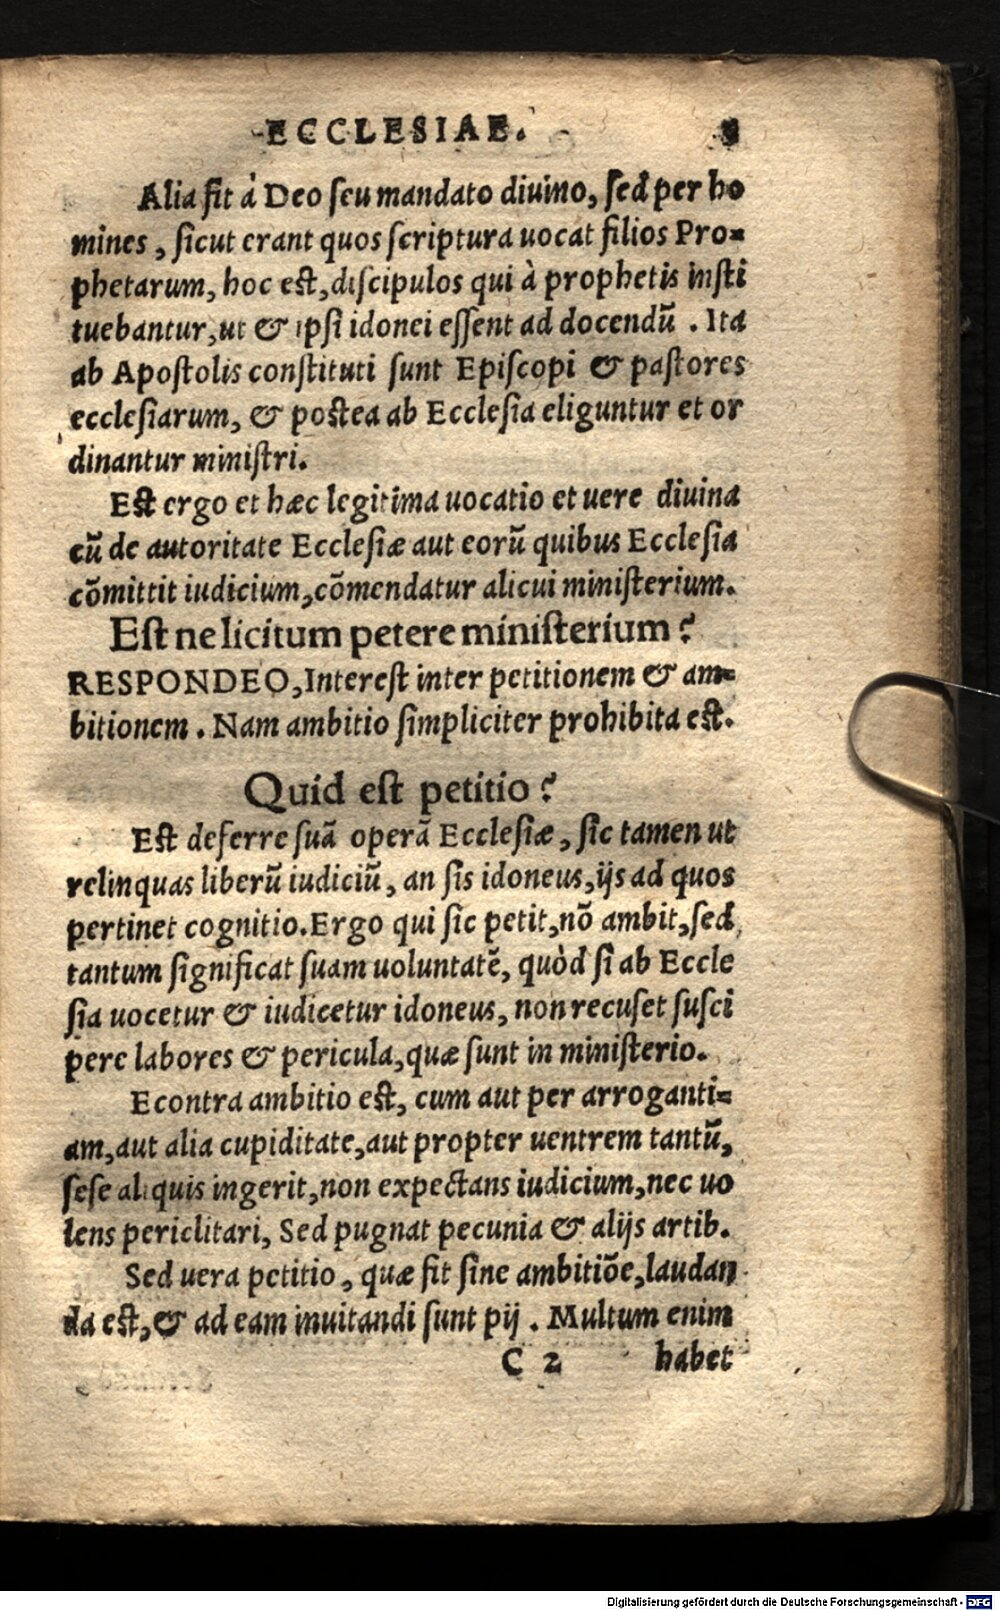 ECCLESIAE.
Alia fit à Deo seu mandato diuino, sed per ho
mines, sicut erant quos scriptura uocat filios Pro=
phetarum, hoc est, discipulos qui à prophetis insti
tuebantur, ut & ipsi idonei essent ad docendū. Ita
ab Apostolis constituti sunt Episcopi & pastores
ecclesiarum, & postea ab Ecclesia eliguntur et or
dinantur ministri.
Est ergo et hæc legitima uocatio et uere diuina
cū de autoritate Ecclesiæ aut eorū quibus Ecclesia
cōmittit iudicium, cōmendatur alicui ministerium.
Est ne licitum petere ministerium?
RESPONDEO, Interest inter petitionem & am=
bitionem. Nam ambitio simpliciter prohibita est.
Quid est petitio?
Est deferre suā operā Ecclesiæ, sic tamen ut
relinquas liberū iudiciū, an sis idoneus, ijs ad quos
pertinet cognitio. Ergo qui sic petit, nō ambit, sed
tantum significat suam uoluntatē, quòd si ab Eccle
sia uocetur & iudicetur idoneus, non recuset susci
pere labores & pericula, quæ sunt in ministerio.
Econtra ambitio est, cum aut per arroganti=
am, aut alia cupiditate, aut propter uentrem tantū,
sese aliquis ingerit, non expectans iudicium, nec uo
lens periclitari, Sed pugnat pecunia & alijs artib.
Sed uera petitio, quæ fit sine ambitiōe, laudan
da est, & ad eam inuitandi sunt pij. Multum enim
C 2 habet
Digitalisierung gefördert durch die Deutsche Forschungsgemeinschaft - DFG